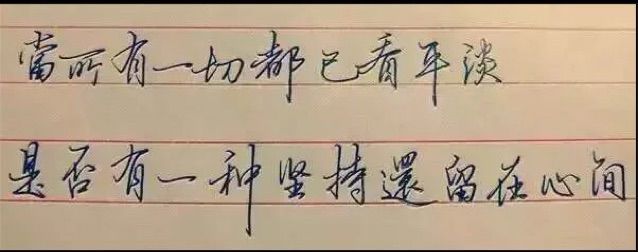 當所有一切都已看平淡
是否有一种坚持還留在心间